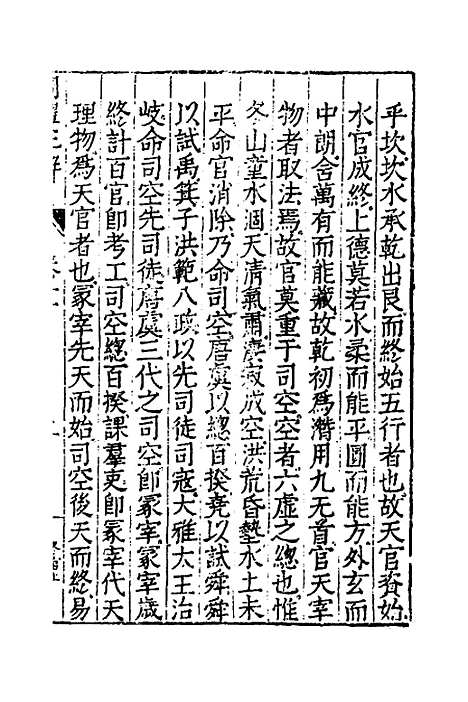 乎坎坎水承乾出艮而終始五行者也故天官資始
水官成終上德莫若水柔而能平圓而能方外玄而
中朗含萬有而能藏故乾初爲潛用九无首官天宰
物者取法焉故官莫重于司空空者六虛之總也惟
冬山童水涸天清氣肅塵寂成空洪荒昏墊水土未
平命官消除乃命司空唐虞以總百揆堯以試舜舜
以試禹箕子洪範八政以先司徒司寇大雅太王治
岐命司空先司徒唐虞三代之司空卽冢宰冢宰歲
終計百官卽考工司空總百揆課羣吏卽冢宰代天
理物爲天官者也冢宰先天而始司空後天而終易